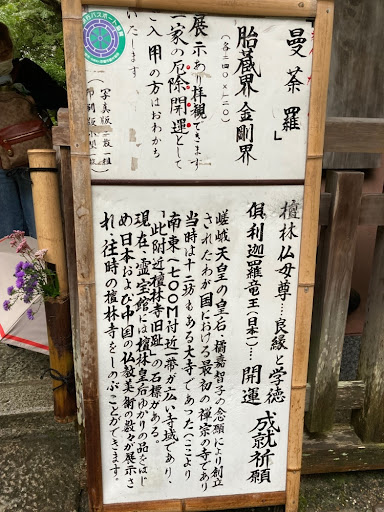 曼荼羅」
胎蔵界 金剛界
(各二四〇×二二〇)
展示あり拝観できます
一家の厄除開運として
ご入用の方はおわかち
いたします
写真版二枚一組
檀林仏母尊…良縁と学徳
倶利迦羅竜王(日本一)…開運
成就祈願
嵯峨天皇の皇后・橘嘉智子の念願により創立
されたわが国における最初の禅宗の寺であり
当時は十二坊もある大寺であった(ここより
南東(七〇〇M)付近一帯が広い寺域であり、
「此附近檀林寺旧趾」の石標がある。)
現在、霊宝館には檀林皇后ゆかりの品をはじ
め日本および中国の仏教美術の数々が展示さ
れ往時の檀林寺をしのぶことができます。